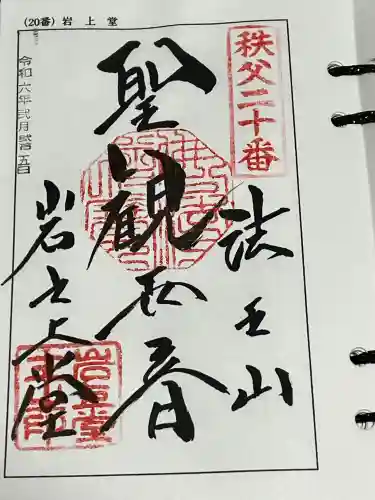 (20番) 岩上堂
秩父二十番
法王山
聖観世音
岩之上堂
令和六年弐月弐拾五日